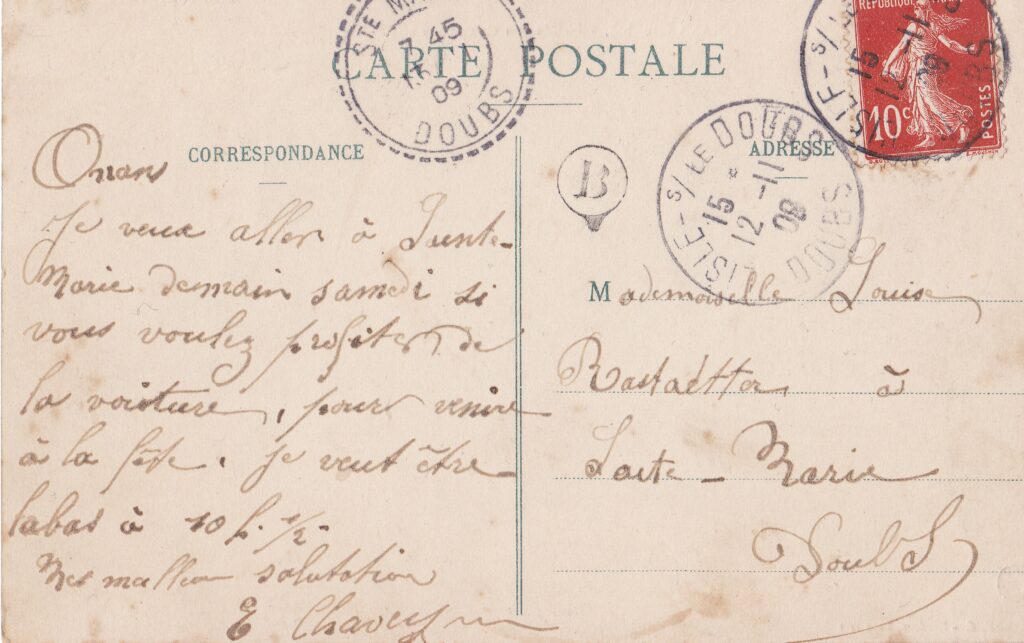 CARTE POSTALE
STE MA
7 45
09
DOUBS
REPUBLIQUE
10c
POSTES
L'ISLE-s/
15
12 -11
09
BS
L'ISLE-s/ LE DOUBS
15 *
12 -11
09
DOUBS
B
CORRESPONDANCE
Onans
Je veux aller à Sainte-
Marie demain samedi si
vous voulez profiter de
la voiture, pour venire
à la fête. Je veut être
labas à 10 h. 1/2.
Mes mailleur salutation
E
ADRESSE
Mademoiselle Louise
Rastaetter à
Saite-Marie
Doubs